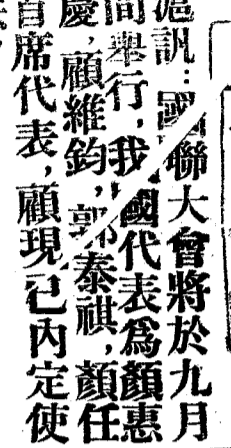 滬訊：國聯大會將於九月
間舉行，我國代表爲顏惠
慶，顧維鈞，郭泰祺，顏任
首席代表，顧現已內定使